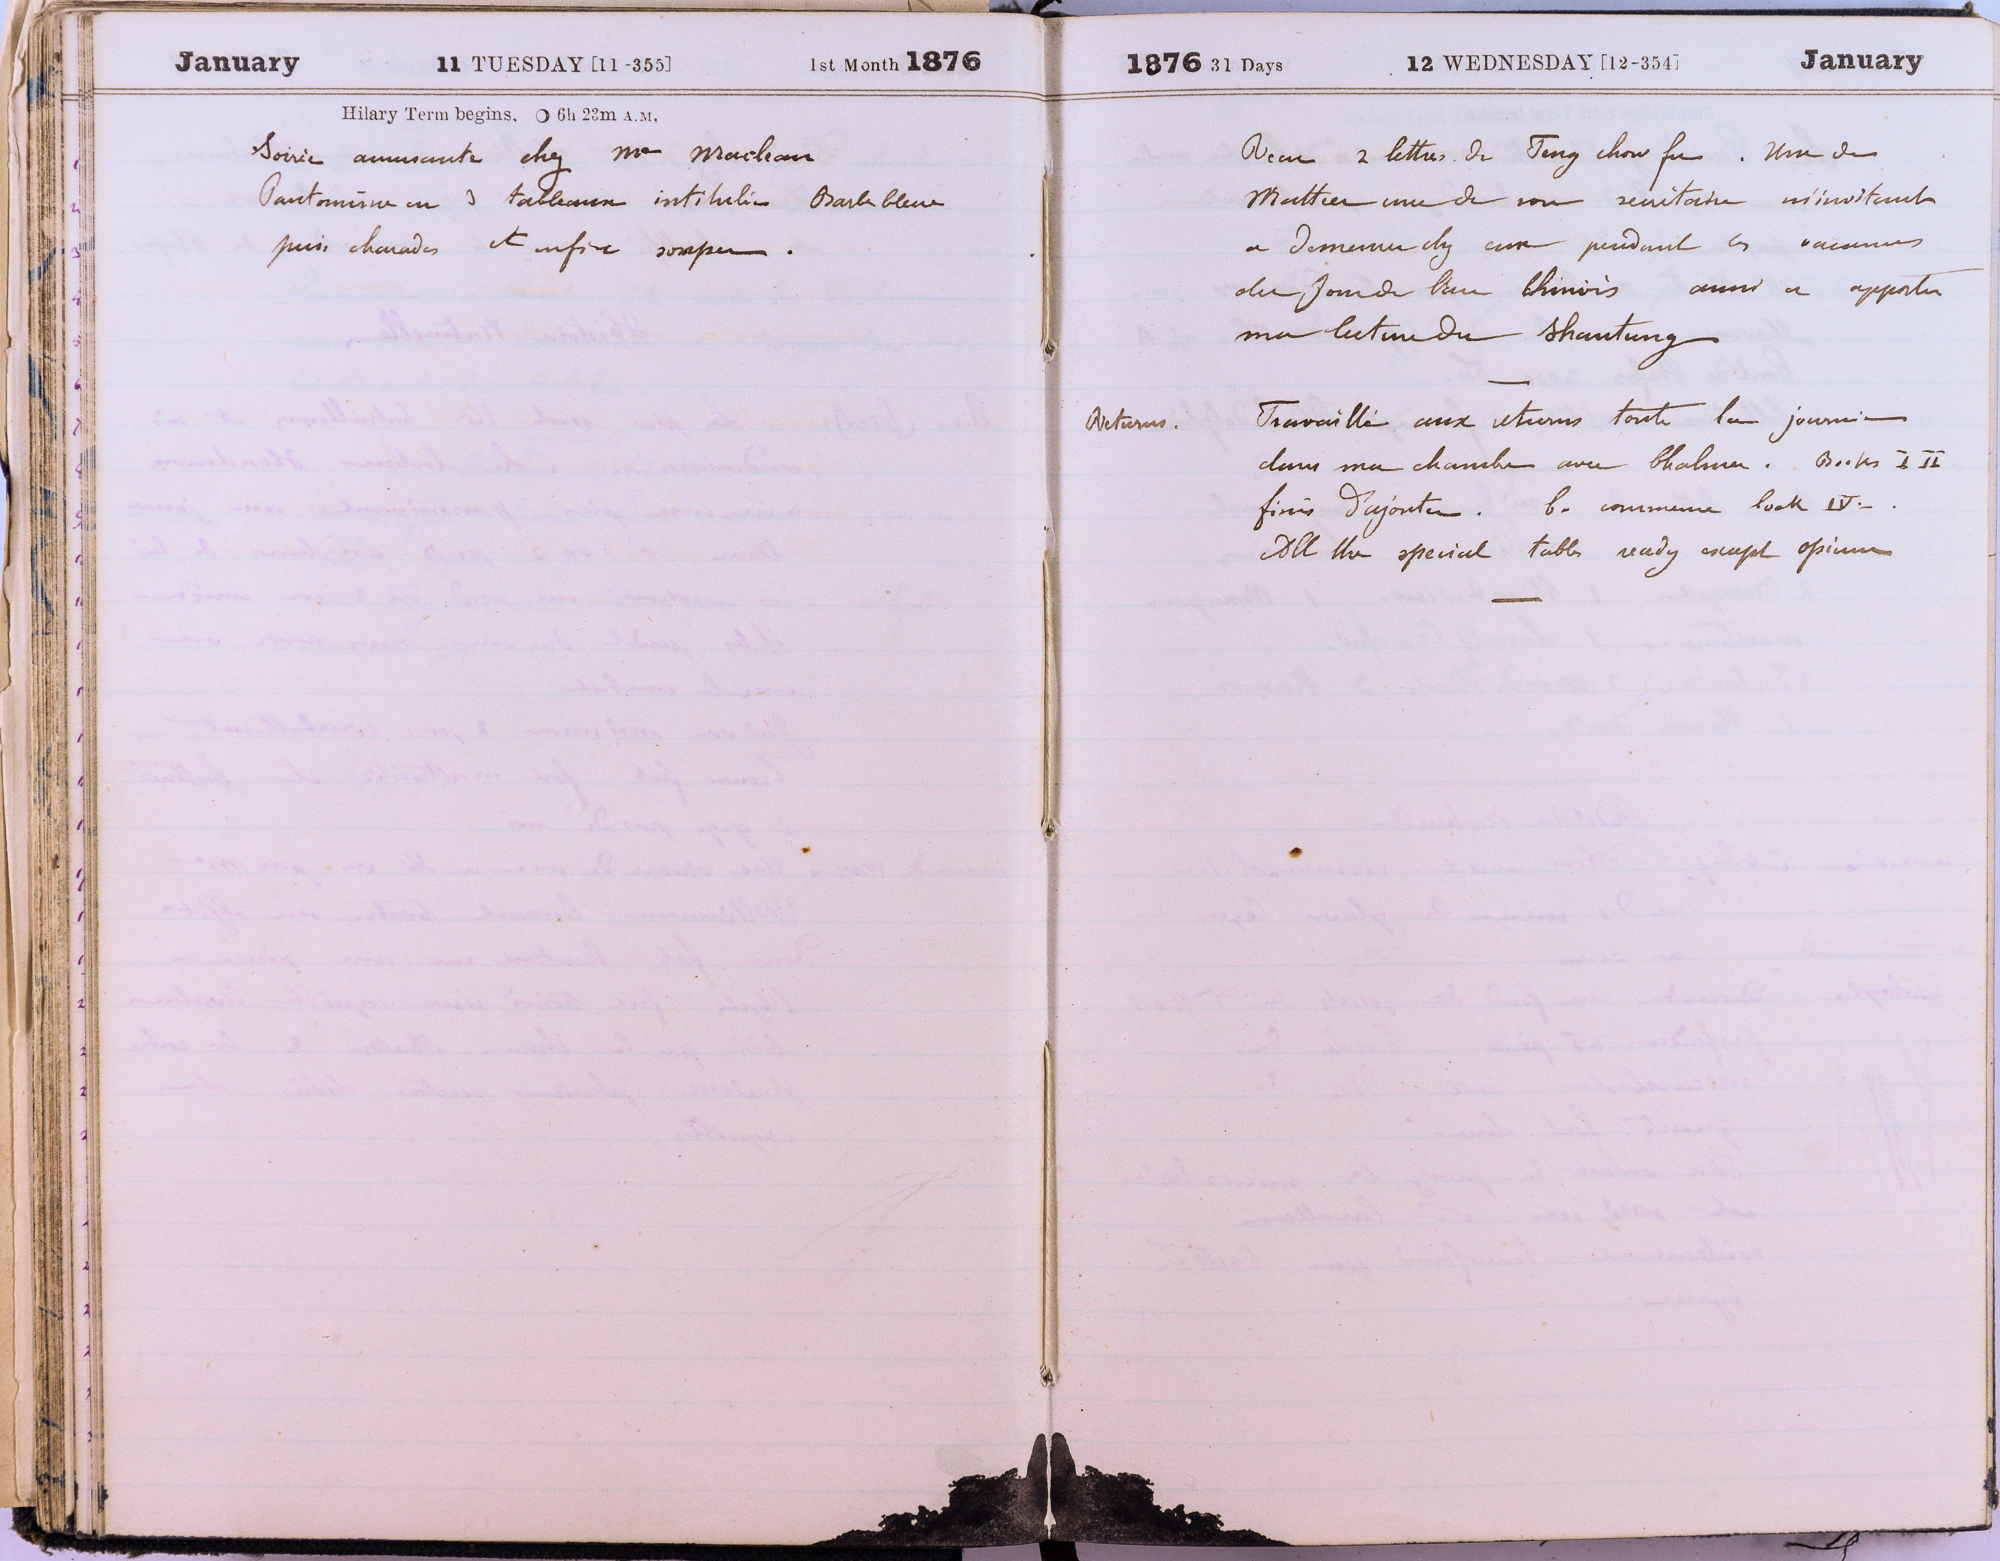 January 11 TUESDAY [11-355] 1st Month 1876
Hilary Term begins. 6h 23m A.M.
Soirée amusante chez Mme Maclean
Pantomime en 3 tableaux intitulée Barbe bleue
puis charades et enfin souper.
1876 31 Days 12 WEDNESDAY [12-354] January
Recu 2 lettres de Teng chow fu. Une de
Matteer une de son secrétaire m'invitant
a demeurer chez eux pendant les vacances
du Jour de l'an Chinois aussi a apporter
ma lecture du Shantung
Returns. Travaillé aux returns toute la journée
dans ma chambre avec Chalmer. Books I II
finis d'ajouter. C. commence book IV.
All the special tables ready except opium